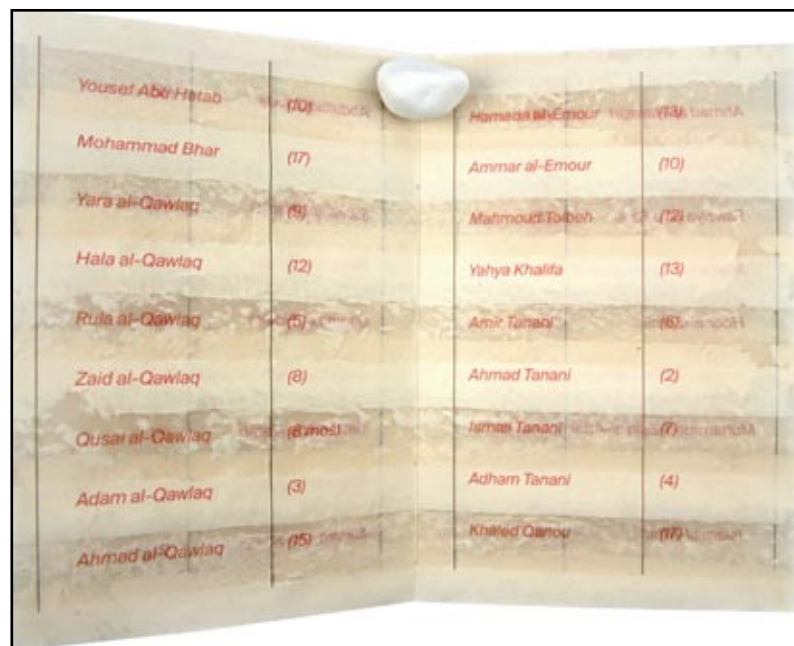 Yousef Abu Hatab (10)
Mohammad Bhar (17)
Yara al-Qawlaq (9)
Hala al-Qawlaq (12)
Rula al-Qawlaq (5)
Zaid al-Qawlaq (8)
Qusai al-Qawlaq (6 mos)
Adam al-Qawlaq (3)
Ahmad al-Qawlaq (15)
Hamada al-Emour (13)
Ammar al-Emour (10)
Mahmoud Tolbeh (12)
Yahya Khalifa (13)
Amir Tanani (6)
Ahmad Tanani (2)
Ismail Tanani (7)
Adham Tanani (4)
Khaled Qanou (17)